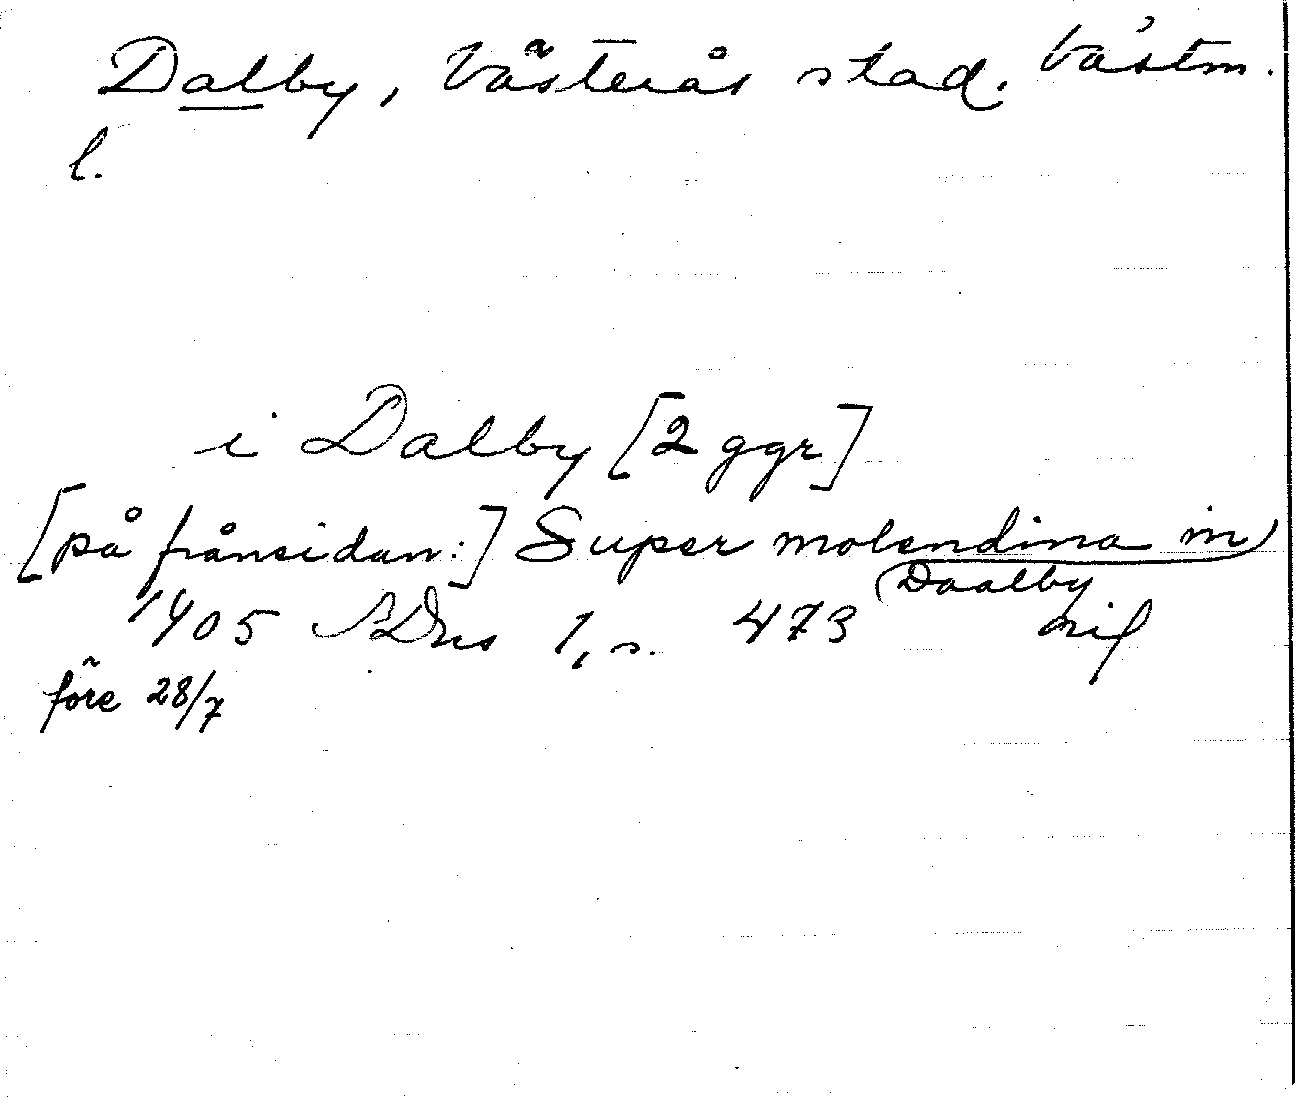 Dalby, Västerås stad. Västm.
l.
i Dalby [2 ggr]
[på frånsidan:] Super molendina in
Daalby
1405 SDns 1, s. 473 nif
före 28/7